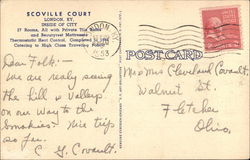 SCOVILLE COURT
LONDON, KY.
INSIDE OF CITY
27 Rooms, All with Private Tile Baths
and Beautyrest Mattresses
Thermostatic Heat Control. Completed in 1946
Catering to High Class Traveling Public
POST CARD
Dear Folk:—
We are really seeing
the hills & Valleys
on our way to the
Smokies. Nice trip
so far.
C. G. Covault.
Mr & Mrs Cleveland Covault
Walnut St.
Fletcher
Ohio.